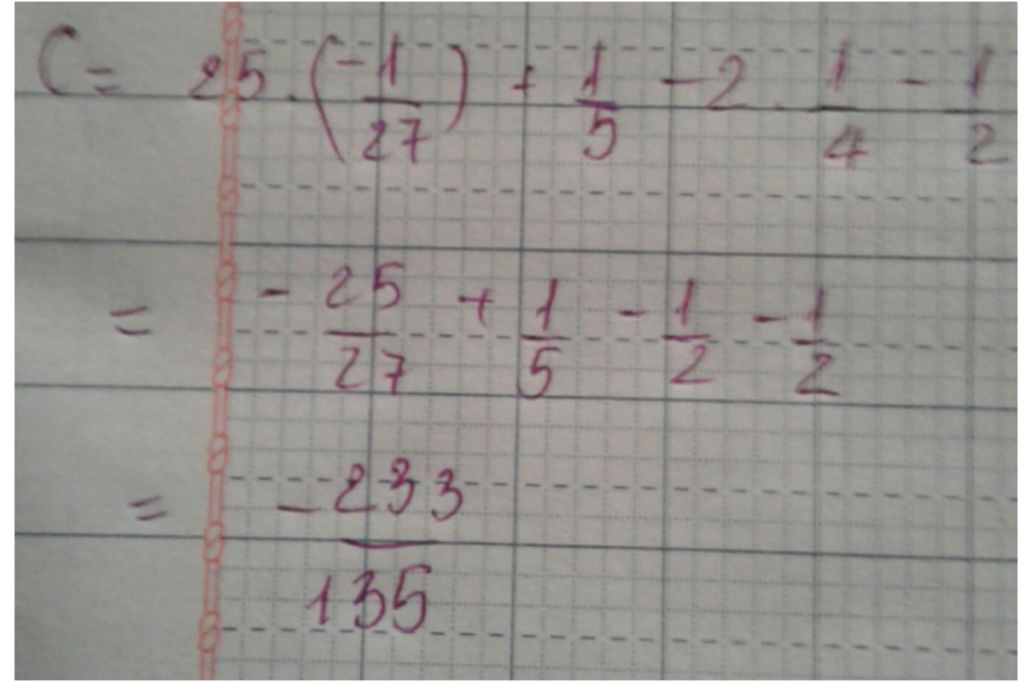 C = 25 . (-1/27) + 1/5 - 2 . 1/4 - 1/2
= - 25/27 + 1/5 - 1/2 - 1/2
= - 233/135